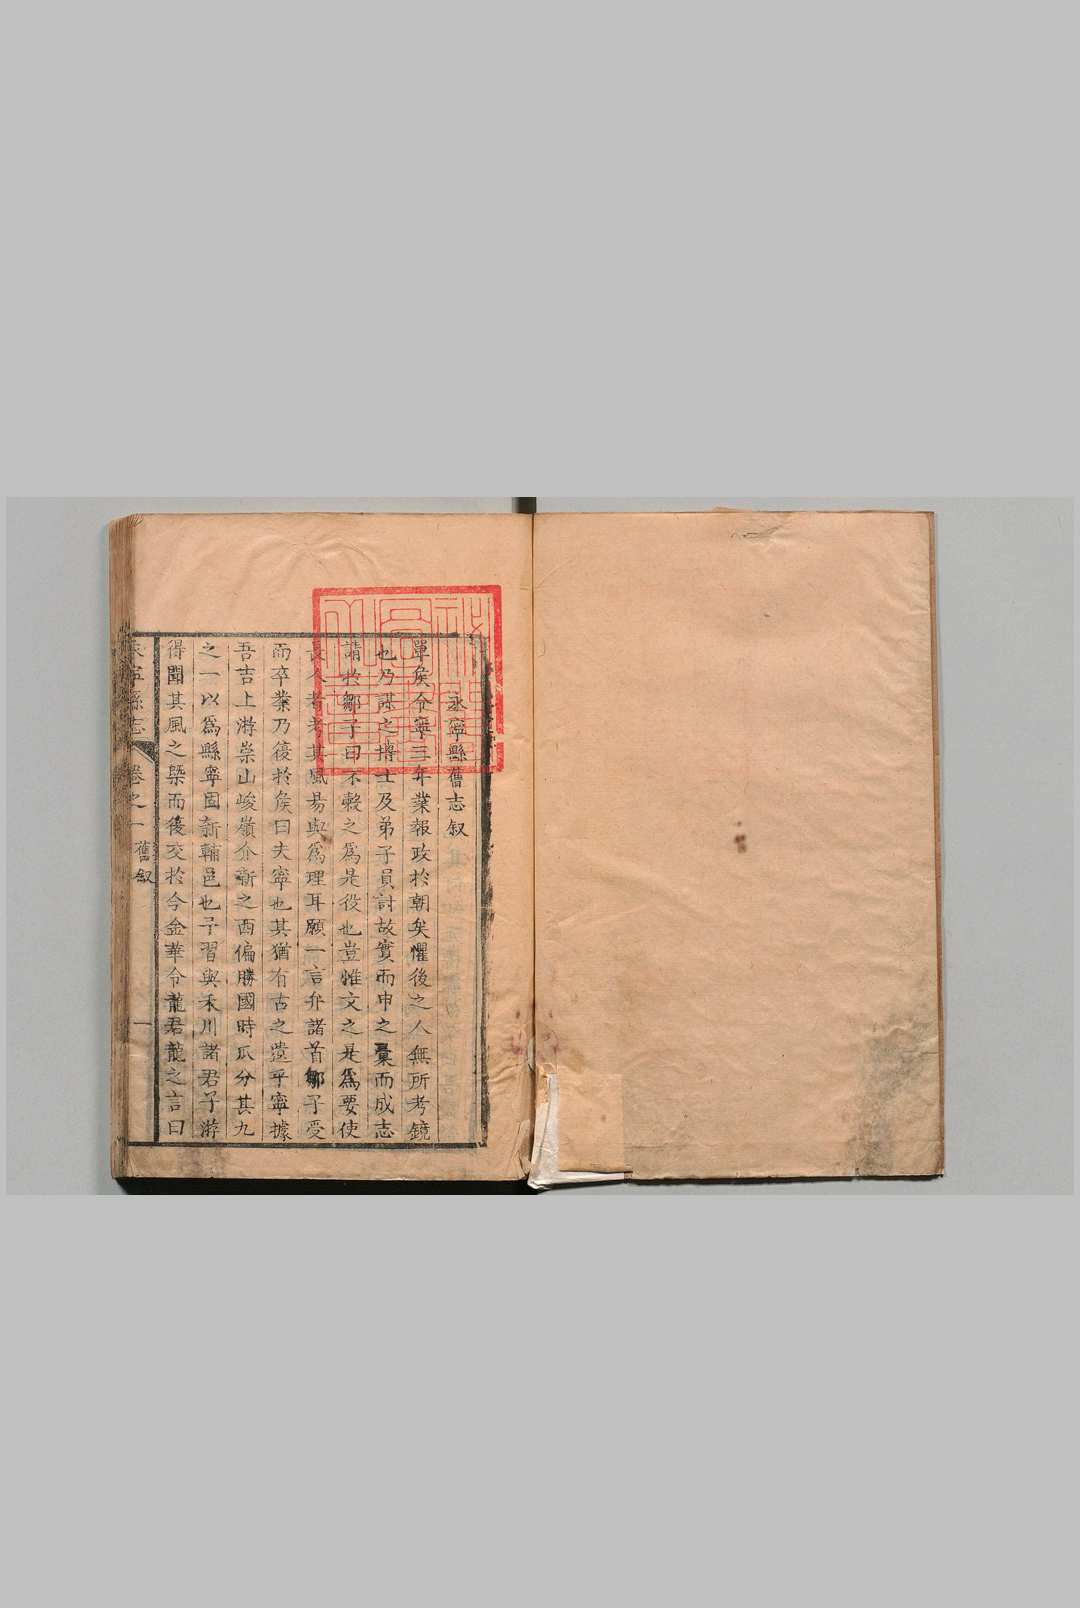 永寧縣舊志叙
單侯令寧三年業報政於朝矣懼後之人無所考鏡
也乃謀之博士及弟子員討故實而申之彙而成志
請於鄒子曰不穀之爲是役也豈惟文之是爲要使
長人者考其風昜與爲理耳願一言弁諸首鄒子受
而卒業乃復於侯曰夫寧也其猶有古之遺乎寧據
吾吉上游崇山峻嶺介新之西偏勝國時瓜分其九
之一以爲縣寧固新輔邑也予習與禾川諸君子游
得聞其風之槩而後交於今金華令龍君龍之言曰
永寧縣志 卷之一 舊叙 一